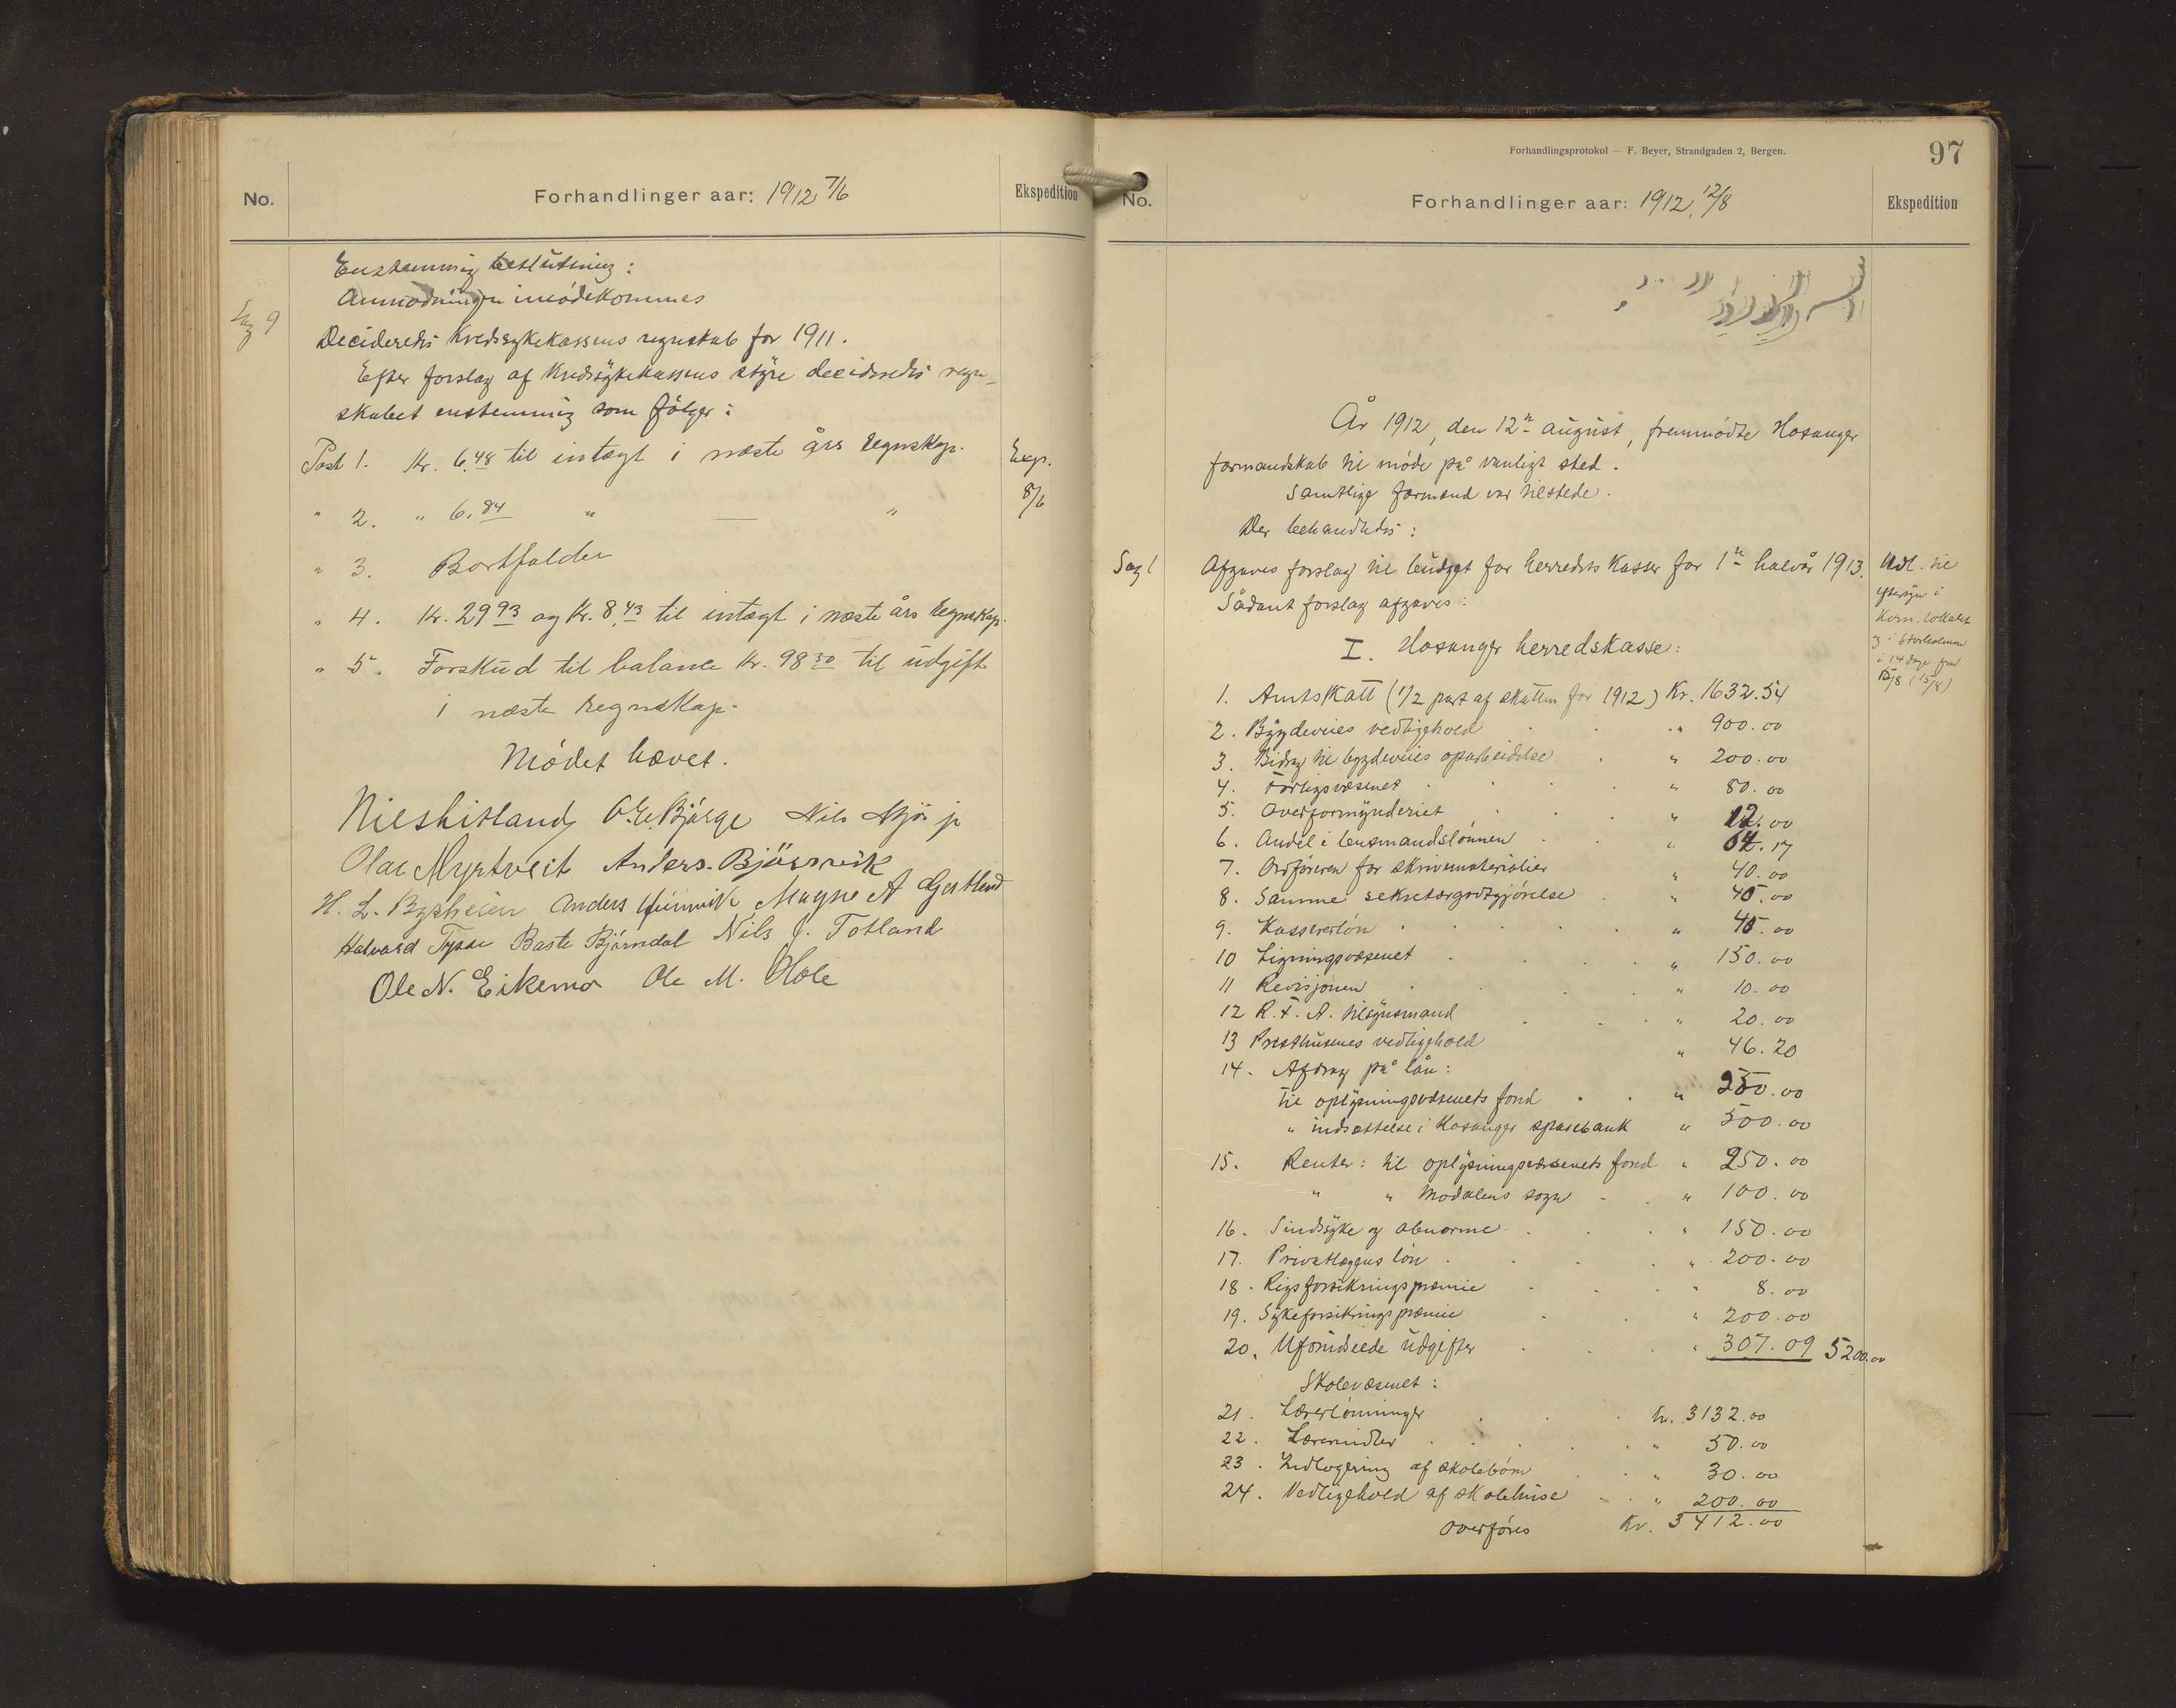 No.
Forhandlinger aar: 1912 7/6
Ekspedition
Enstemmig beslutning:
Anmodningen imødekommes
Sag 9
Decideredes Kredssykekassens regnskab for 1911.
Efter forslag af Kredssykekassens styre decideredes regn-
skabet enstemmig som følger:
Post 1. Kr. 6.48 til intægt i næste års regnskap.
Exp.
8/6
" 2. " 6.84 " — "
" 3. Bortfalder
" 4. Kr. 29 93 og Kr. 8.43 til intægt i næste års regnskap.
" 5. Forskud til balance Kr. 98 30 til udgift
i næste regnskap.
Mødet hævet.
Nils Litland O. E. Bjørge Nils Mjøs jr
Olai Myrtveit Anders Bjørsvik
H. L. Bysheim Anders Magne A Gjetland
Halvard Tysse Baste Bjørndal Nils J. Totland
Ole N. Eikemo Ole M. Hole
Forhandlingsprotokol — F. Beyer, Strandgaden 2, Bergen.
97
No.
Forhandlinger aar: 1912, 12/8
Ekspedition
År 1912, den 12te august, fremmødte Hosanger
formandskab til møde på vanligt sted.
Samtlige formænd var tilstede.
Der behandledes:
Sag 1
Afgaves forslag til budget for herredets kasser for 1ste halvår 1913.
Sådant forslag afgaves:
Udl. til
eftersyn i
Kom. lokalet
og i Storholmen
i 14 dage fra
15/8 (15/8)
I. Hosanger herredskasse:
1. Amtskatt (1/2 part af skatten for 1912) Kr. 1632.54
2. Bygdeveies vedligehold " 900.00
3. Bidrag til bygdeveies oparbeidelse " 200.00
4. Forligsvæsenet " 80.00
5. Overformynderiet " 12.00
6. Andel i lensmandslønnen " 64.17
7. Ordføreren for skrivematerialier " 40.00
8. Samme sekretærgodtgjørelse " 45.00
9. Kassererløn " 45.00
10 Ligningsvæsenet " 150.00
11 Revisjonen " 10.00
12 R. F. A. tilsynsmand " 20.00
13 Presthusenes vedligehold " 46.20
14. Afdrag på lån:
Til oplysningsvæsenets fond " 250.00
" indsættelse i Hosanger sparebank " 500.00
15. Renter: til oplysningsvæsenets fond " 250.00
" " Modalens sogn " 100.00
16. Sindssyke og abnorme " 150.00
17. Privatlægens løn " 200.00
18. Rigsforsikringspræmie " 8.00
19. Sykeforsikringspræmie " 200.00
20. Uforudseede udgifter " 307.09 5200.00
Skolevæsenet:
21. Lærerlønninger Kr. 3132.00
22. Læremidler " 50.00
23. Indlogering af skolebørn " 30.00
24. Vedligehold af skolehuse " 200.00
overføres Kr. 3412.00